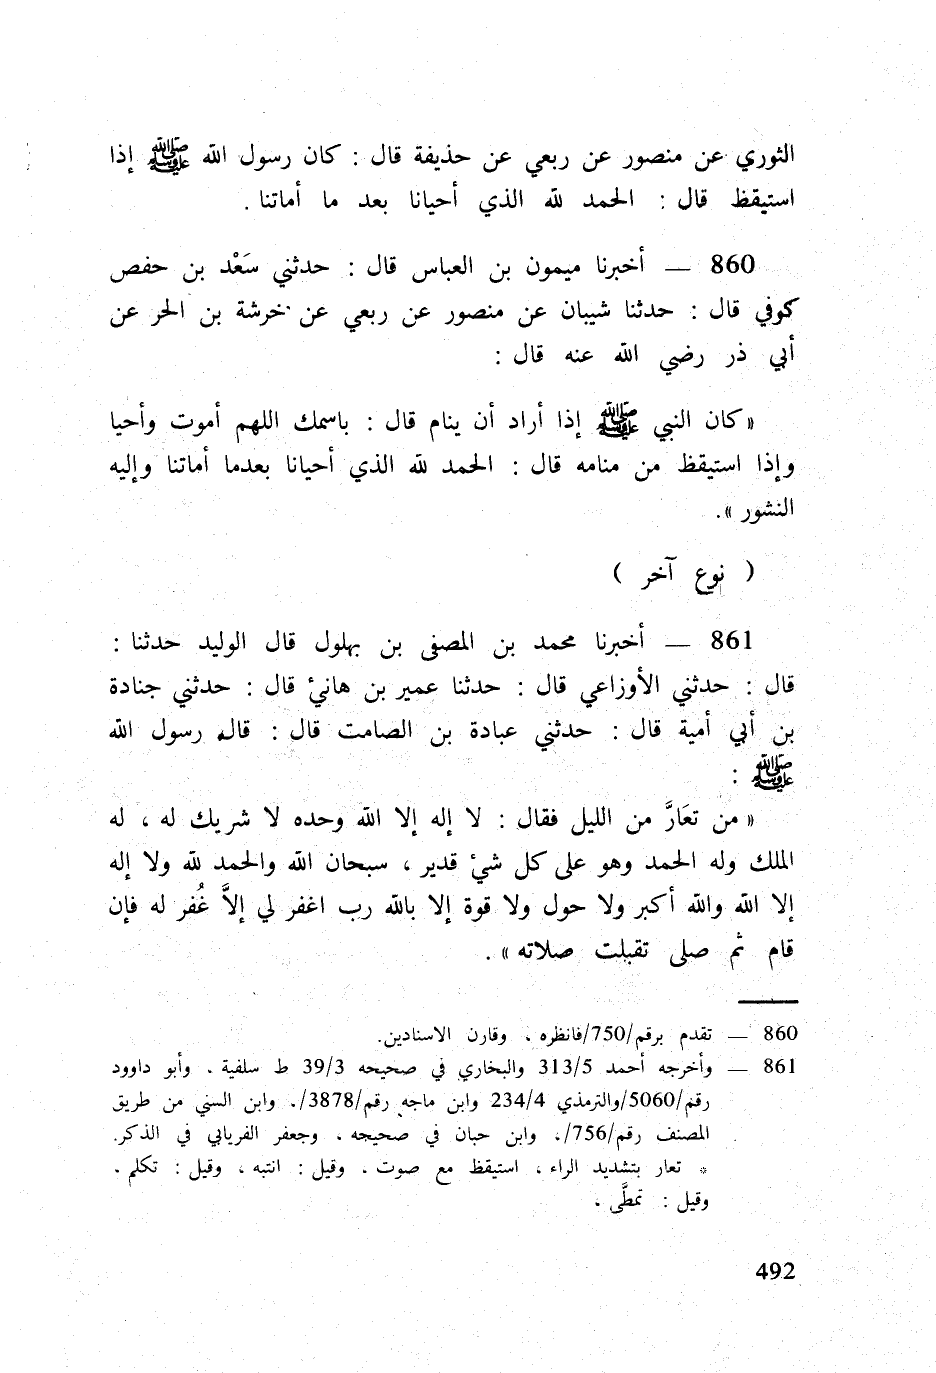 الثوري عن منصور عن ربعي عن حذيفة قال : كان رسول الله ﷺ إذا
استيقظ قال : الحمد لله الذي أحيانا بعد ما أماتنا .
860 — أخبرنا ميمون بن العباس قال : حدثني سَعْد بن حفص
كوفي قال : حدثنا شيبان عن منصور عن ربعي عن خرشة بن الحر عن
أبي ذر رضي الله عنه قال :
« كان النبي ﷺ إذا أراد أن ينام قال : باسمك اللهم أموت وأحيا
وإذا استيقظ من منامه قال : الحمد لله الذي أحيانا بعدما أماتنا وإليه
النشور ».
( نوع آخر )
861 — أخبرنا محمد بن المصفى بن بهلول قال الوليد حدثنا :
قال : حدثني الأوزاعي قال : حدثنا عمير بن هانئ قال : حدثني جنادة
بن أبي أمية قال : حدثني عبادة بن الصامت قال : قال رسول الله
ﷺ :
« من تَعَارَّ من الليل فقال : لا إله إلا الله وحده لا شريك له ، له
الملك وله الحمد وهو على كل شئ قدير ، سبحان الله والحمد لله ولا إله
إلا الله والله أكبر ولا حول ولا قوة إلا بالله رب اغفر لي إلاَّ غُفر له فإن
قام ثم صلى تقبلت صلاته » .
860 — تقدم برقم/750/فانظره ، وقارن الاسنادين.
861 — وأخرجه أحمد 313/5 والبخاري في صحيحه 39/3 ط سلفية ، وأبو داوود
رقم/5060/والترمذي 234/4 وابن ماجه رقم/3878/، وابن السني من طريق
المصنف رقم/756/، وابن حبان في صحيحه ، وجعفر الفريابي في الذكر.
* تعار بتشديد الراء ، استيقظ مع صوت ، وقيل : انتبه ، وقيل : تكلم ،
وقيل : تمطَّى .
492